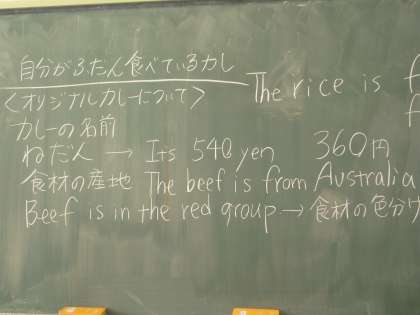 自分がふだん食べているカレ
The rice is f
<オリジナルカレーについて>
カレーの名前
ねだん → Its 540 yen 360円
食材の産地 The beef is from Australia
Beef is in the red group → 食材の色分け